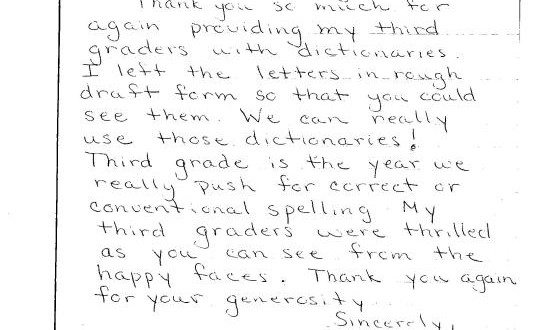 Thank you so much for
again providing my third
graders with dictionaries.
I left the letters in rough
draft form so that you could
see them. We can really
use those dictionaries!
Third grade is the year we
really push for correct or
conventional spelling. My
third graders were thrilled
as you can see from the
happy faces. Thank you again
for your generosity.
Sincerely,